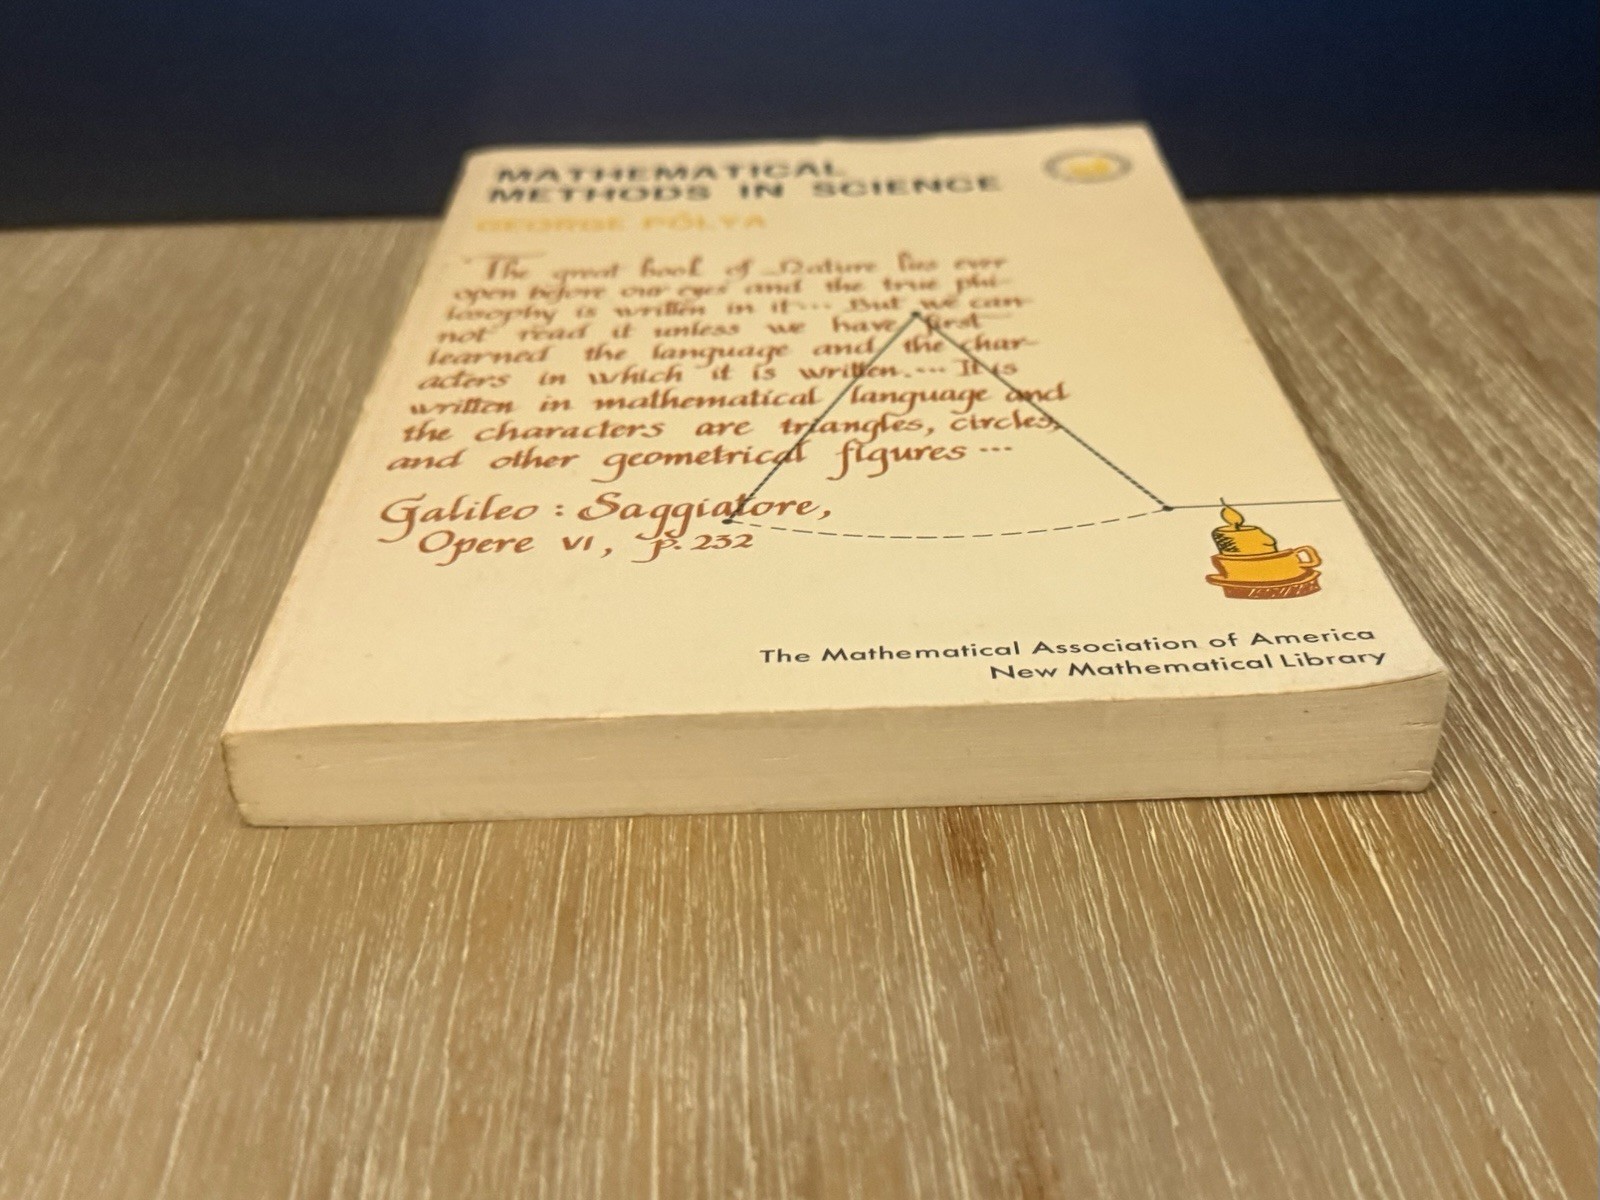 MATHEMATICAL
METHODS IN SCIENCE
GEORGE PÓLYA
The great book of Nature lies ever
open before our eyes and the true phi-
losophy is written in it ... But we can-
not read it unless we have first
learned the language and the char-
acters in which it is written.... It is
written in mathematical language and
the characters are triangles, circles,
and other geometrical figures ...
Galileo : Saggiatore,
Opere VI, p. 232
The Mathematical Association of America
New Mathematical Library